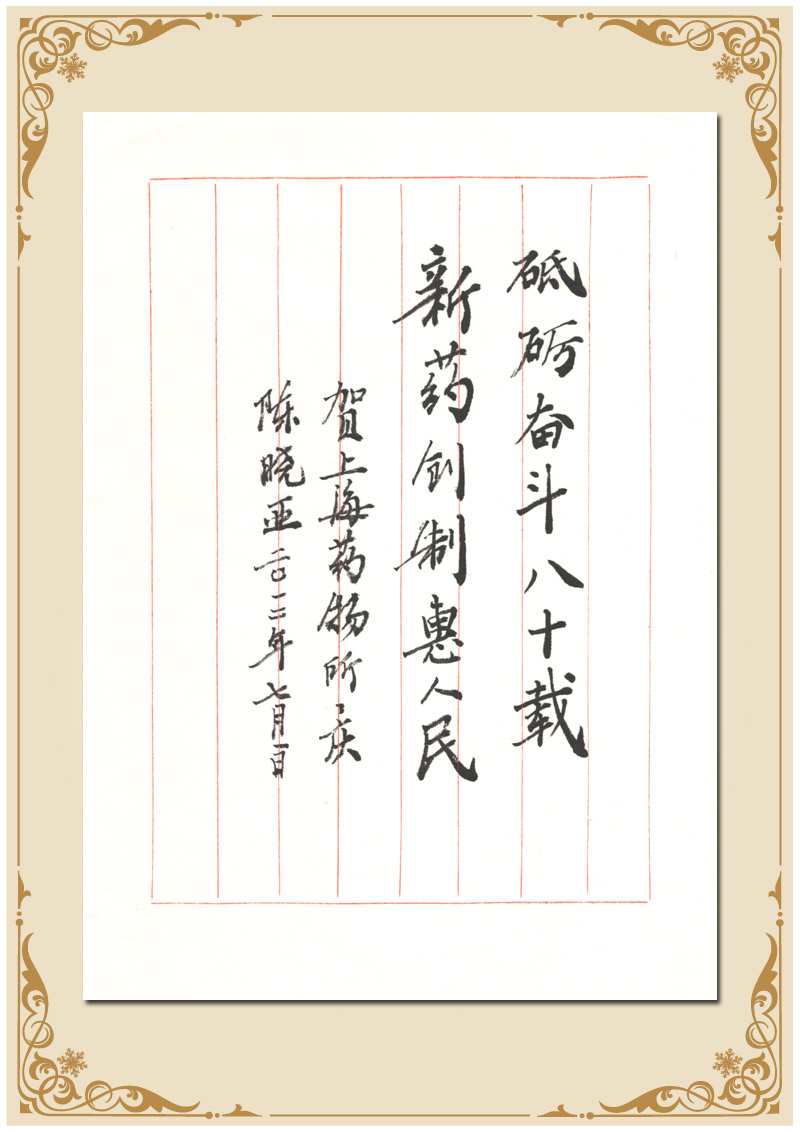 砥砺奋斗八十载
新药创制惠人民
贺上海药物所所庆
陈晓亚二〇一二年七月一日